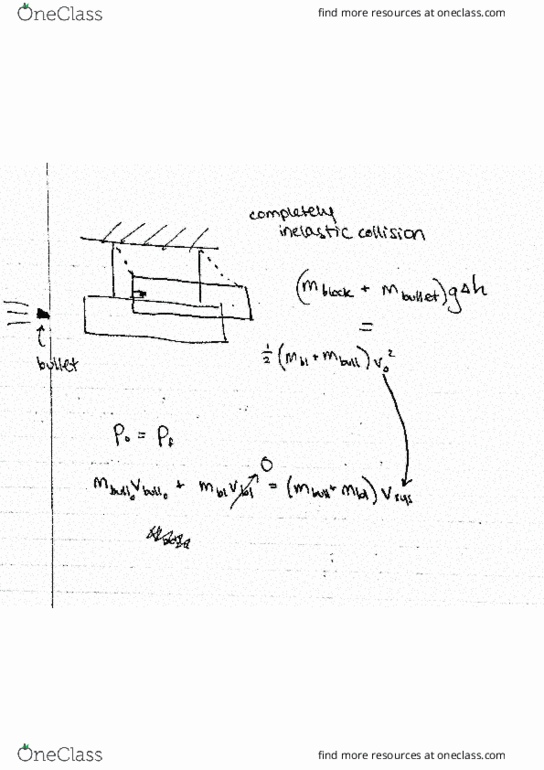 OneClass
find more resources at oneclass.com
completely
inelastic collision
(m block + m bullet) gΔh
=
½ (m bl + m bull) v₀²
bullet
P₀ = P_f
m bull₀ v bull₀ + m bl v bl 0 = (m bull + m bl) v sys
OneClass
find more resources at oneclass.com